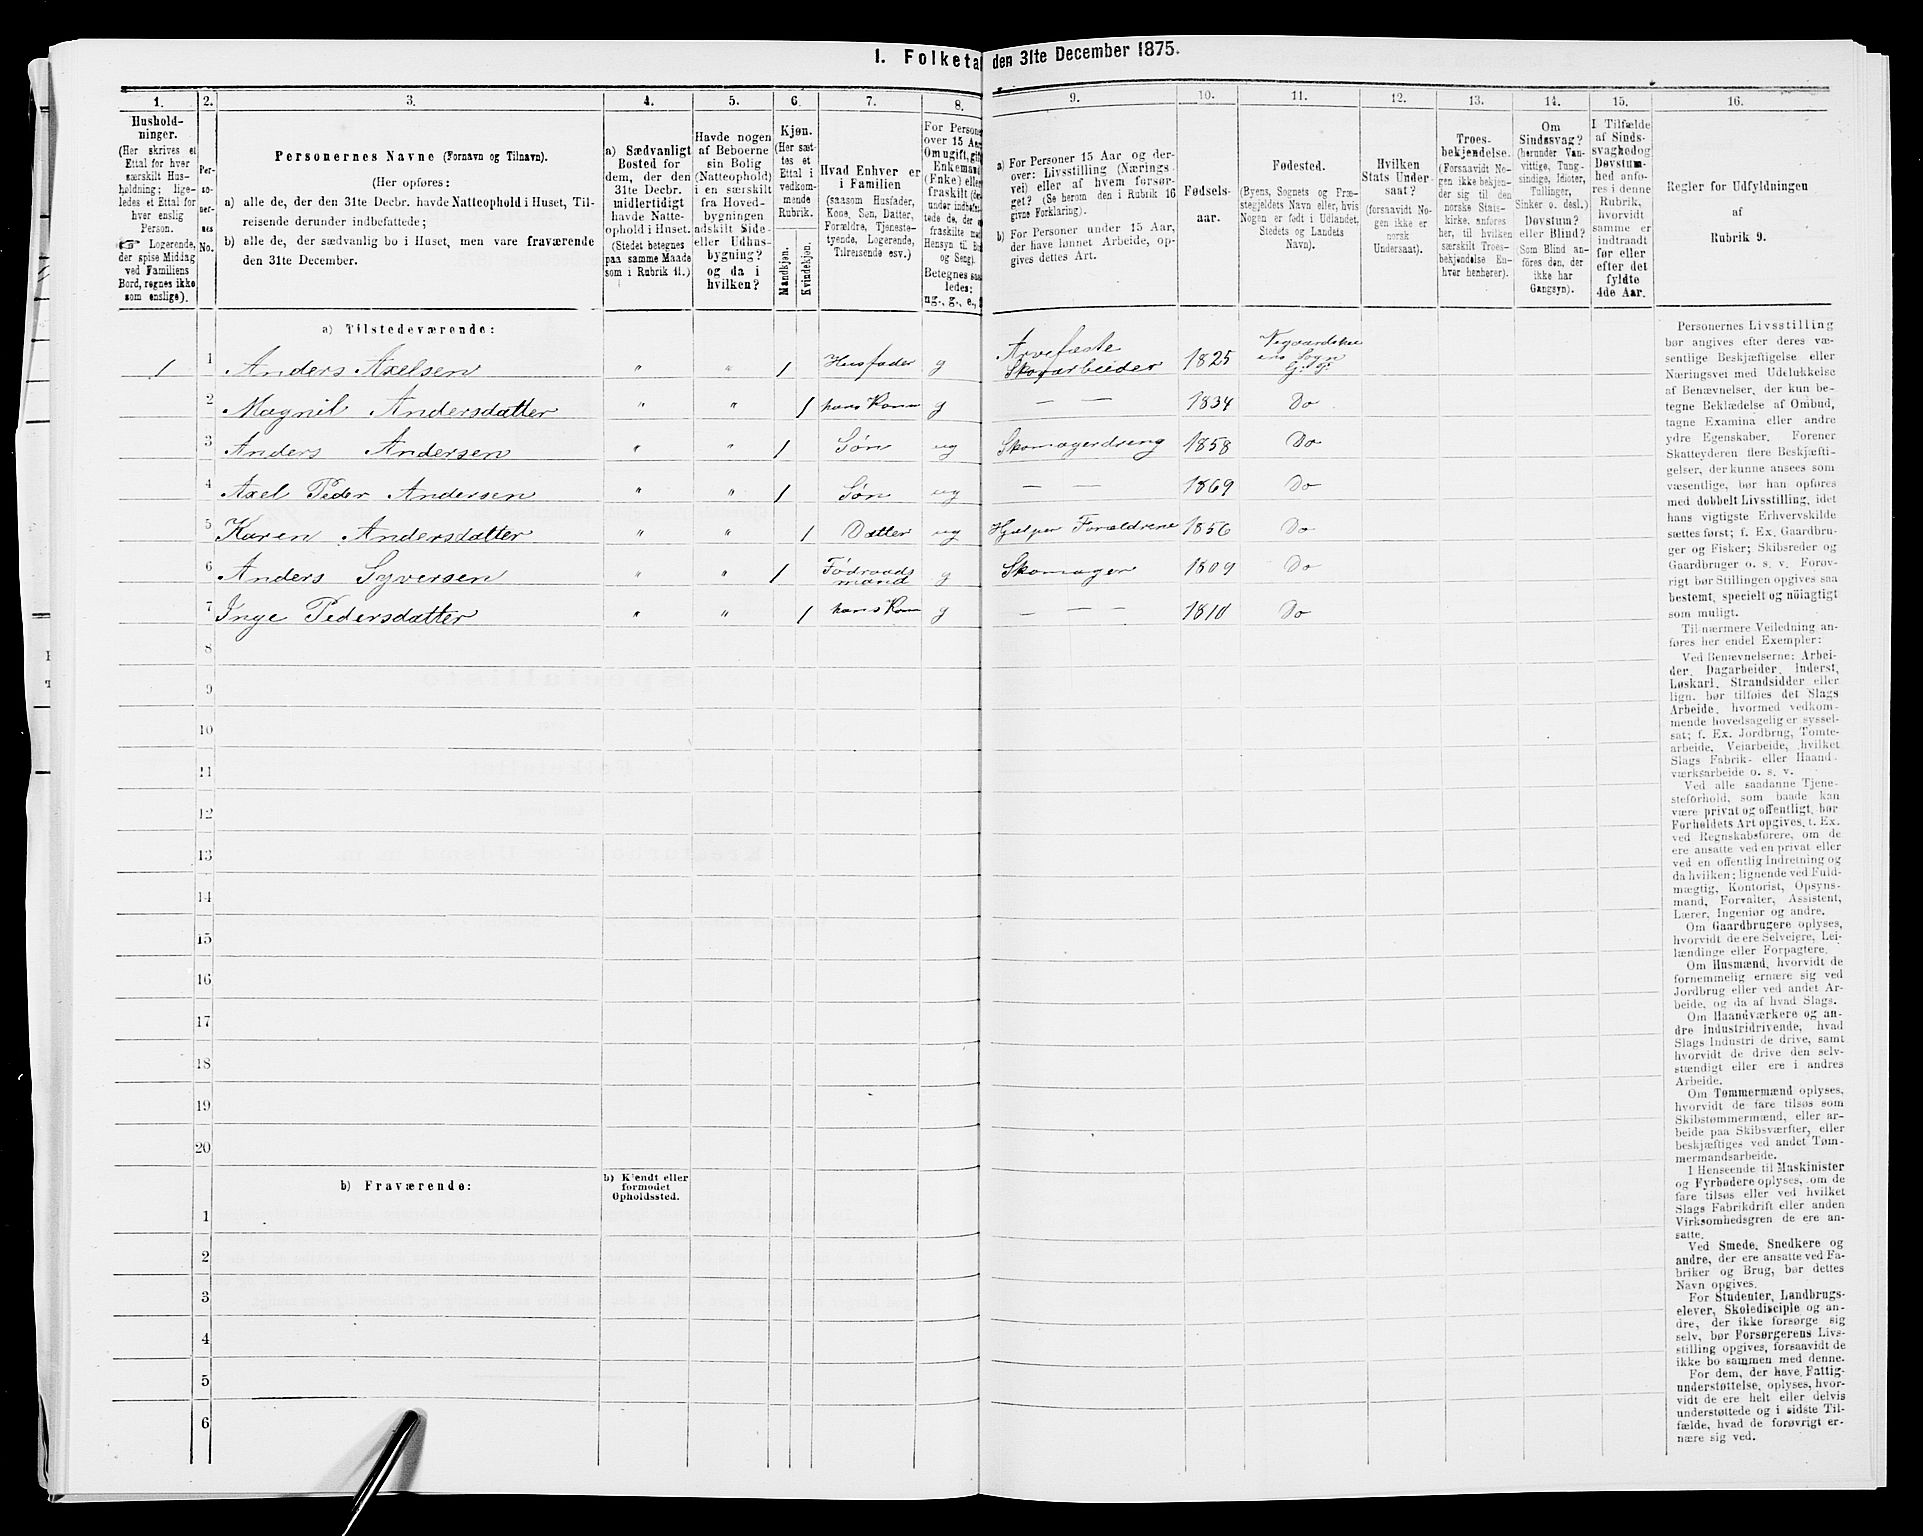 I. Folketa den 31te December 1875.
1. 2. 3. 4. 5. 6. 7. 8. 9. 10. 11. 12. 13. 14. 15. 16.
Hushold-
ninger.
(Her skrives et
Ettal for hver
særskilt Hus-
holdning; lige-
ledes et Ettal for
hver enslig
Person.
☞ Logerende,
der spise Middag
ved Familiens
Bord, regnes ikke
som enslige).
Per-
so-
ner-
nes
No.
Personernes Navne (Fornavn og Tilnavn).
(Her opføres:
a) alle de, der den 31te Decbr. havde Natteophold i Huset, Til-
reisende derunder indbefattede;
b) alle de, der sædvanlig bo i Huset, men vare fraværende
den 31te December.
a) Sædvanligt
Bosted for
dem, der den
31te Decbr.
midlertidigt
havde Natte-
ophold i Huset.
(Stedet betegnes
paa samme Maade
som i Rubrik 11.)
Havde nogen
af Beboerne
sin Bolig
(Natteophold)
i en særskilt
fra Hoved-
bygningen
adskilt Side-
eller Udhus-
bygning?
og da i
hvilken?
Kjøn.
(Her sæt-
tes et
Ettal i
vedkom-
mende
Rubrik.
Mandkjøn.
Kvindekjøn.
Hvad Enhver er
i Familien
(saasom Husfader,
Kone, Søn, Datter,
Forældre, Tjeneste-
tyende, Logerende,
Tilreisende osv.)
For Persone
over 15 Aa
Om ugift, gift
Enkemand
(Enke) elle
fraskilt (de
under indbe
tede de, der
fraskilte med
Hensyn til B
og Seng).
Betegnes saa
ledes:
ug., g., e.,
a) For Personer 15 Aar og der-
over: Livsstilling (Nærings-
vei) eller af hvem forsør-
get? (Se herom den i Rubrik 16
givne Forklaring).
b) For Personer under 15 Aar,
der have lønnet Arbeide, op-
gives dettes Art.
Fødsels-
aar.
Fødested.
(Byens, Sognets og Præ-
stegjeldets Navn eller, hvis
Nogen er født i Udlandet,
Stedets og Landets
Navn).
Hvilken
Stats Under-
saat?
(forsaavidt No-
gen ikke er
norsk
Undersaat).
Troes-
bekjendelse.
(Forsaavidt No-
gen ikke bekjen-
der sig til den
norske Stats-
kirke, anføres
her, til hvilken
særskilt Troes-
bekjendelse En-
hver henhører).
Om
Sindssvag?
(herunder Van-
vittige, Tung-
sindige, Idioter,
Tullinger,
Sinker o. desl.)
Døvstum?
eller Blind?
(Som Blind an-
føres den, der
ikke har
Gangsyn).
I Tilfælde
af Sinds-
svaghed og
Døvstum-
hed anfø-
res i denne
Rubrik,
hvorvidt
samme er
indtraadt
før eller
efter det
fyldte
4de Aar.
Regler for Udfyldningen
af
Rubrik 9.
a) Tilstedeværende:
1 1 Anders Axelsen " " 1 Husfader g Arvefæste Skoarbeider 1825 Sogn
2 Magnil Andersdatter " " 1 hans Kone g — — 1834 Do
3 Anders Andersen " " 1 Søn ug Skomagerdreng 1858 Do
4 Axel Peder Andersen " " 1 Søn ug — — 1869 Do
5 Karen Andersdatter " " 1 Datter ug Hjælper Forældrene 1856 Do
6 Anders Syversen " " 1 Födraads mand g Skomager 1809 Do
7 Inge Pedersdatter " " 1 hans Kone g — — — 1810 Do
8
9
10
11
12
13
14
15
16
17
18
19
20
b) Fraværende:
b) Kjendt eller
formodet
Opholdssted.
1
2
3
4
5
6
Personernes Livsstilling
bør angives efter deres væ-
sentlige Beskjæftigelse eller
Næringsvei med Udelukkelse
af Benævnelser, der kun be-
tegne Beklædelse af Ombud,
tagne Examina eller andre
ydre Egenskaber. Forener
Skatteyderen flere Beskjæfti-
gelser, der kunne ansees som
væsentlige, bør han opføres
med dobbelt Livsstilling, idet
hans vigtigste Erhvervskilde
sættes først; f. Ex. Gaardbru-
ger og Fisker; Skibsreder og
Gaardbruger o. s. v. Forøv-
rigt bør Stillingen opgives saa
bestemt, specielt og nöiagtigt
som muligt.
Til nærmere Veiledning an-
føres her endel Exempler:
Ved Benævnelserne: Arbei-
der, Dagarbeider, Inderst,
Løskarl, Strandsidder eller
lign. bør tilføies det Slags
Arbeide, hvormed vedkom-
mende hovedsagelig er syssel-
sat; f. Ex. Jordbrug, Tomte-
arbeide, Veiarbeide, hvilket
Slags Fabrik- eller Haand-
værksarbeide o. s. v.
Ved alle saadanne Tjene-
steforhold, som baade kan
være privat og offentligt, bør
Forholdets Art opgives, t. Ex.
ved Regnskabsførere, om de
ere ansatte ved en privat eller
ved en offentlig Indretning og
da hvilken; lignende ved Fuld-
mægtig, Kontorist, Opsyns-
mand, Forvalter, Assistent,
Lærer, Ingeniør og andre.
Om Gaardbrugere oplyses,
hvorvidt de ere Selveiere, Lei-
lændinge eller Forpagtere.
Om Husmænd, hvorvidt de
fornemmelig ernære sig ved
Jordbrug eller ved andet Ar-
beide, og da af hvad Slags.
Om Haandværkere og an-
dre Industridrivende, hvad
Slags Industri de drive, samt
hvorvidt de drive den selv-
stændigt eller ere i andres
Arbeide.
Om Tømmermænd oplyses,
hvorvidt de fare tilsøs som
Skibstømmermænd, eller ar-
beide paa Skibsværfter, eller
beskjæftiges ved andet Tøm-
mermandsarbeide.
I Henseende til Maskinister
og Fyrbødere oplyses, om de
fare tilsøs eller ved hvilket
Slags Fabrikdrift eller anden
Virksomhedsgren de ere an-
satte.
Ved Smede, Snedkere og
andre, der ere ansatte ved Fa-
briker og Brug, bør dettes
Navn opgives.
For Studenter, Landbrugs-
elever, Skoledisciple og an-
dre, der ikke forsørge sig
selv, bør Forsørgerens Livs-
stilling opgives, forsaavidt de
ikke bo sammen med denne.
For dem, der have Fattig-
understøttelse, oplyses, hvor-
vidt de ere helt eller delvis
understøttede og i sidste Til-
fælde, hvad de forøvrigt er-
nære sig ved.